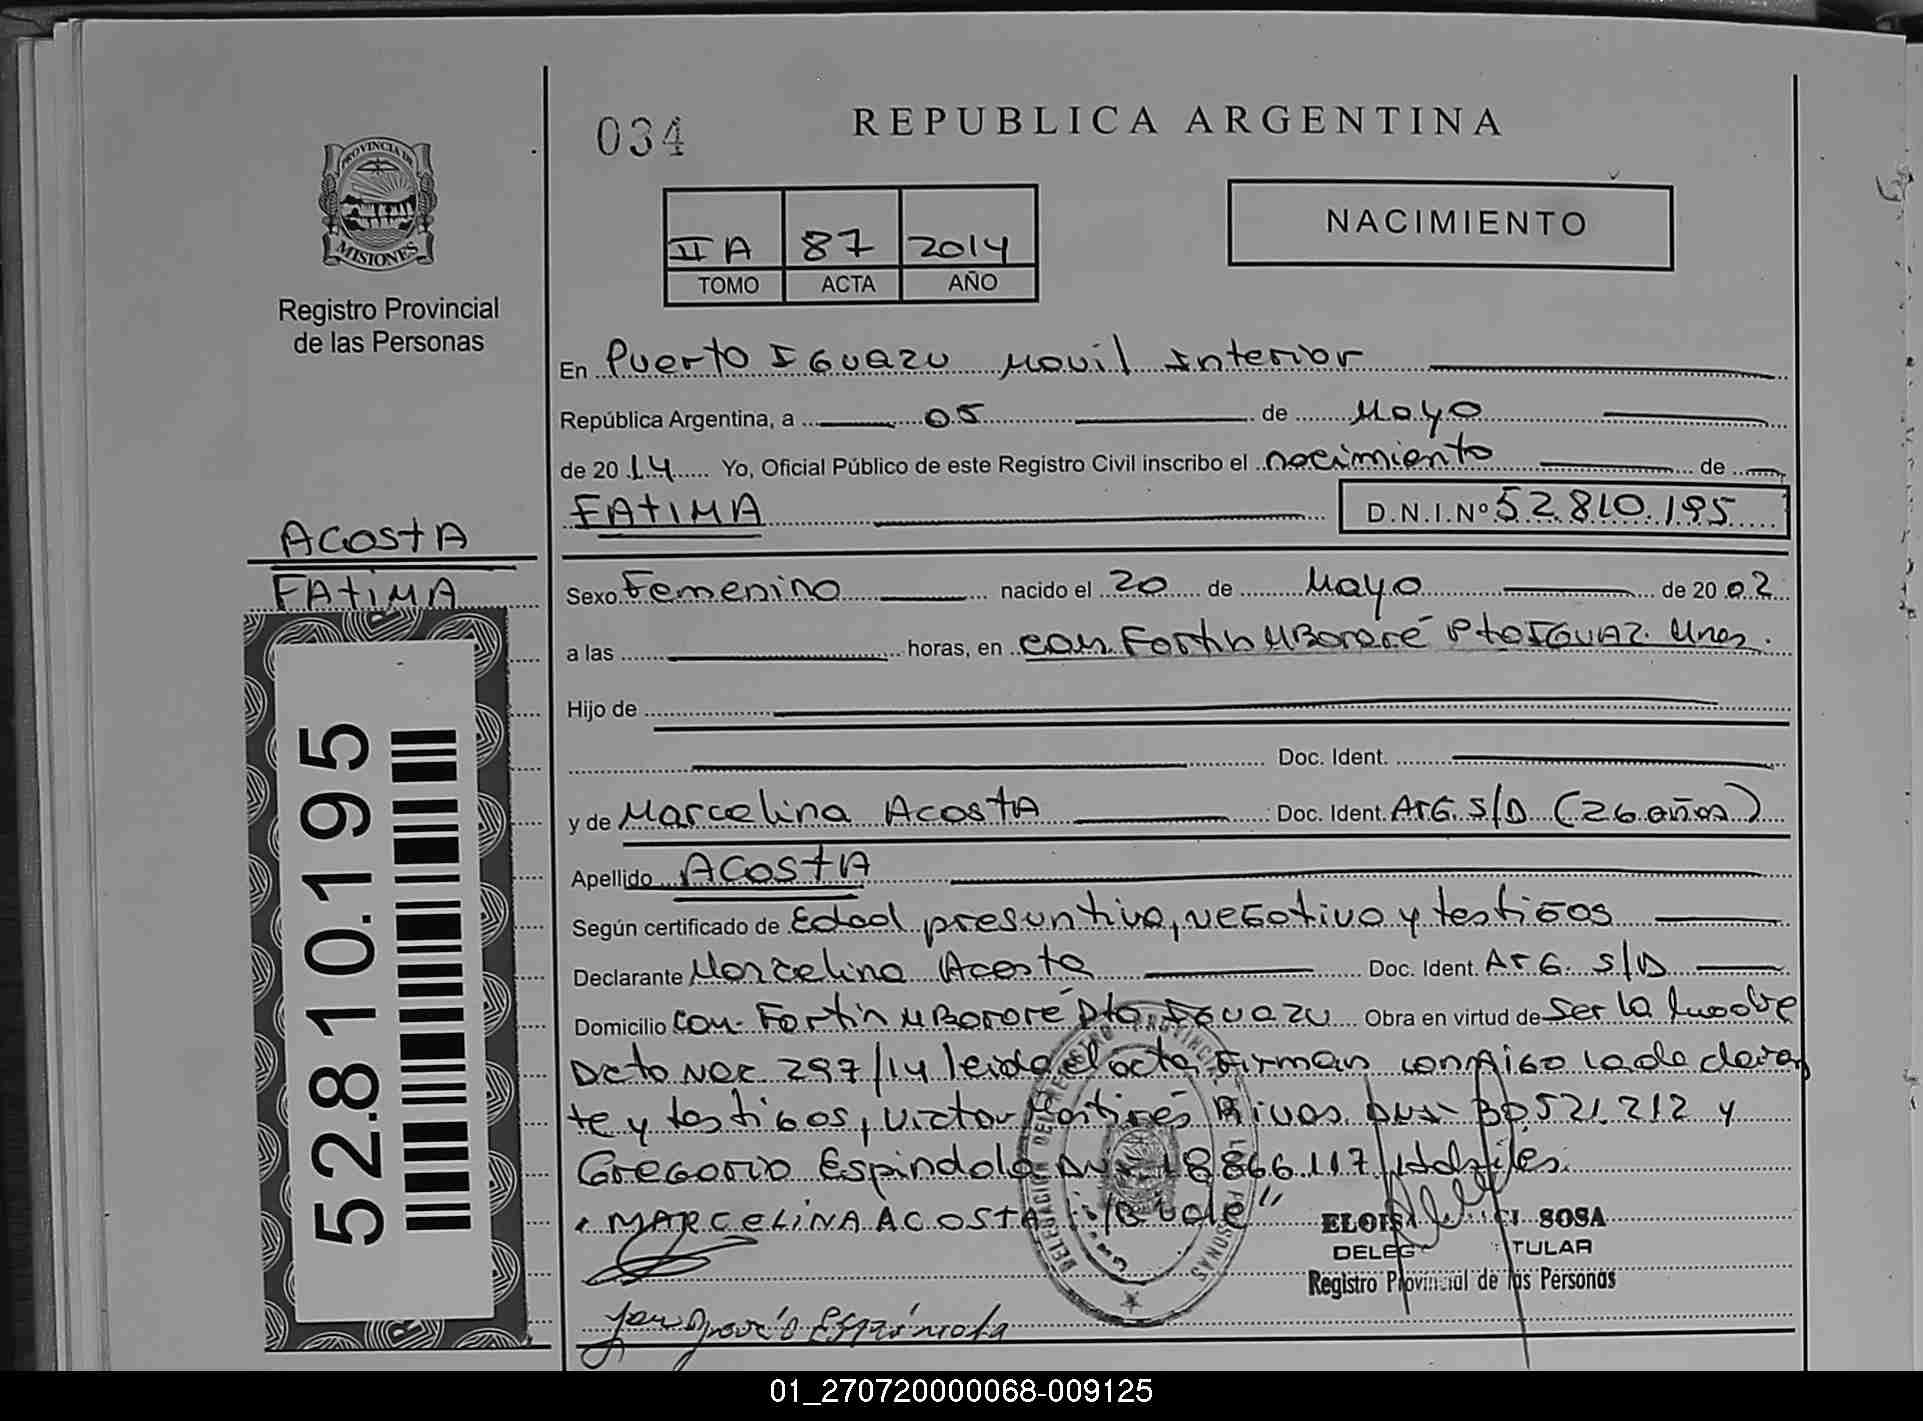 034
REPUBLICA ARGENTINA
PROVINCIA DE
MISIONES
Registro Provincial
de las Personas
II A 87 2014
TOMO ACTA AÑO
NACIMIENTO
En Puerto IGUAZU Movil Interior
República Argentina, a 05 de Mayo
de 2014 Yo, Oficial Público de este Registro Civil inscribo el nacimiento de
FATIMA D.N.I.Nº 52.810.195
ACOSTA
FATIMA
Sexo Femenino nacido el 20 de Mayo de 2002
a las horas, en com Fortin MBororé Pto IGUAZ. Mnes.
Hijo de
Doc. Ident.
y de Marcelina ACOSTA Doc. Ident. ArG. S/D (26 años)
Apellido ACOSTA
Según certificado de Edad presuntiva, neGativa y testiGos
Declarante Marcelina Acosta Doc. Ident. ArG. S/D
Domicilio com. Fortin MBororé Pto IGuazu Obra en virtud de Ser la madre
Dcto Nac. 297/14 leida el acta Firman conmiGo la declaran
te y testiGos, Victor Rivas DNI 30.521.212 y
GreGorio Espindola DNI 18.866.117 Habiles.
MARCELINA ACOSTA "i/B vale"
SOSA
TULAR
Registro Provincial de las Personas
Espíndola
52.810.195
01_270720000068-009125